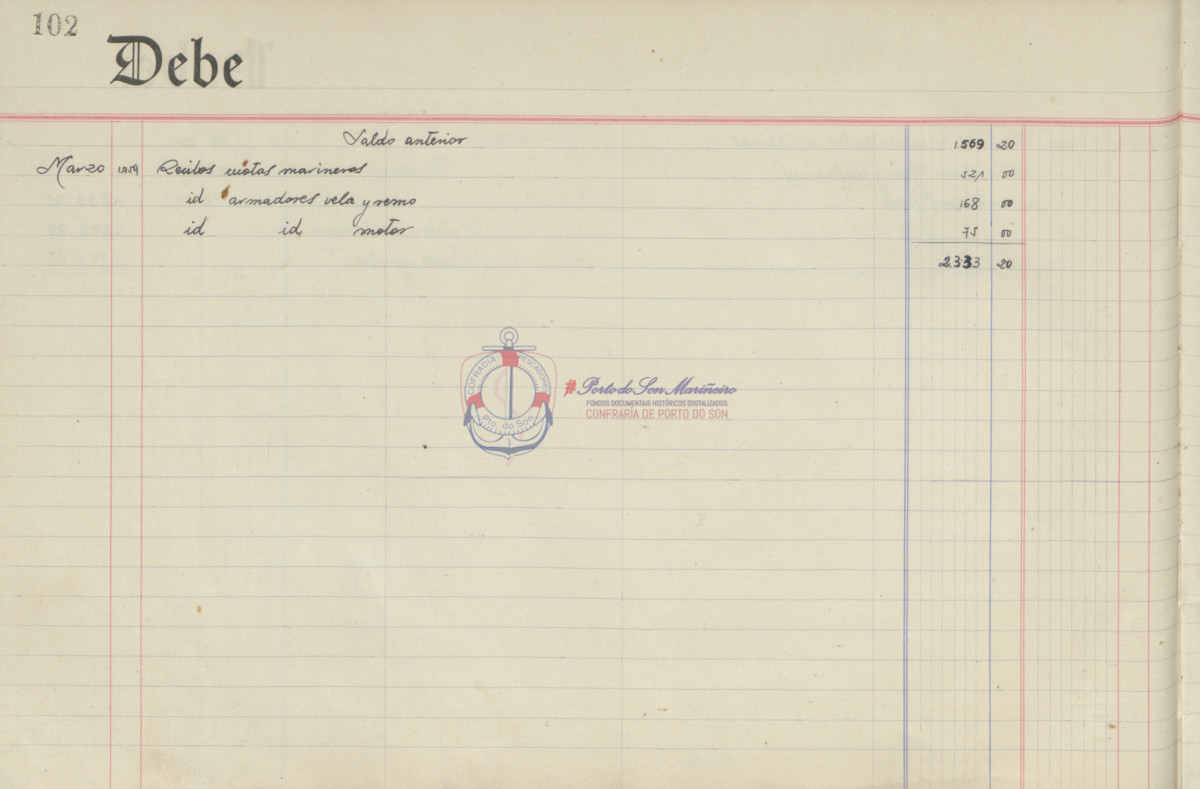 102
Debe
Saldo anterior 1.569 20
Marzo 1.959 Recibos cuotas marineros 521 00
id armadores vela y remo 168 00
id id motor 75 00
2.333 20
COFRADIA PESCADORES
Pto. do Son
# Porto do Son Mariñeiro
FONDOS DOCUMENTAIS HISTÓRICOS DIXITALIZADOS
CONFRARÍA DE PORTO DO SON